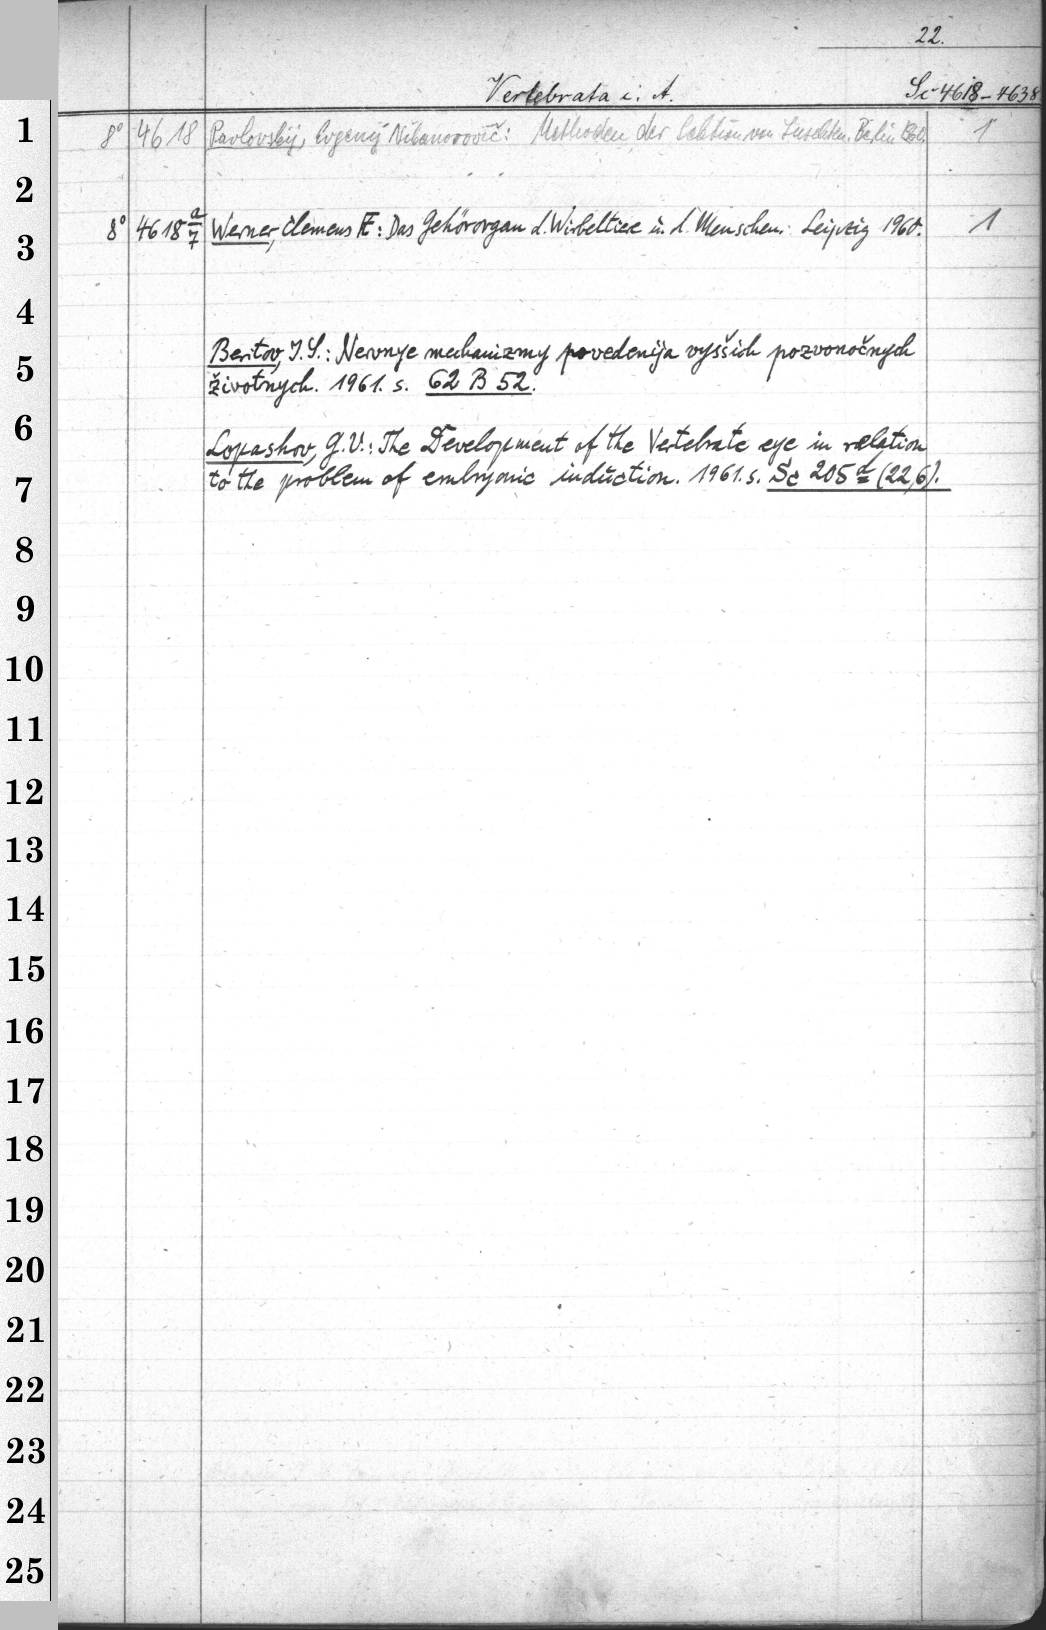 22.
Vertebrata i. A. Sc 4618-4638
1
8° 4618 Pavlovskij, Evgenij Nikanorovič: Methoden der Sektion von Insekten. Berlin 1
2
8° 4618 a/7 Werner, Clemens F.: Das Gehörorgan d. Wirbeltiere u. d. Menschen. Leipzig 1960. 1
3
4
Beritov, I. S.: Nervnye mechanizmy povedenija vysšich pozvonočnych
5
životnych. 1961. s. 62 B 52.
6
Lopashov, G. V.: The Development of the Vertebrate eye in relation
to the problem of embryonic induction. 1961. s. Sc 205 d (22,6).
7
8
9
10
11
12
13
14
15
16
17
18
19
20
21
22
23
24
25